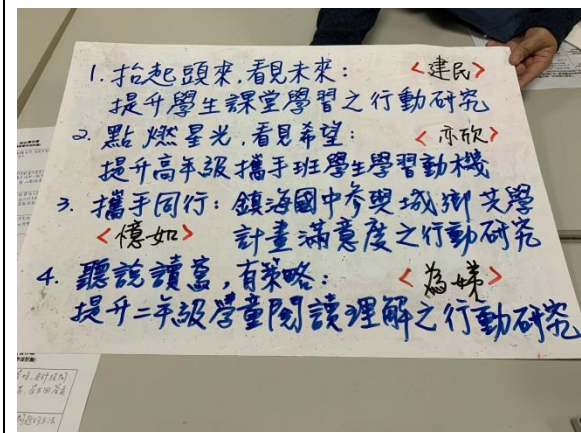 1. 抬起頭來,看見未來: <建民>
提升學生課堂學習之行動研究
2. 點燃星光,看見希望: <亦欣>
提升高年級攜手班學生學習動機
3. 攜手同行: 鎮海國中參與城鄉共學
<憶如> 計畫滿意度之行動研究
4. 聽說讀寫,有策略: <為娣>
提升二年級學童閱讀理解之行動研究